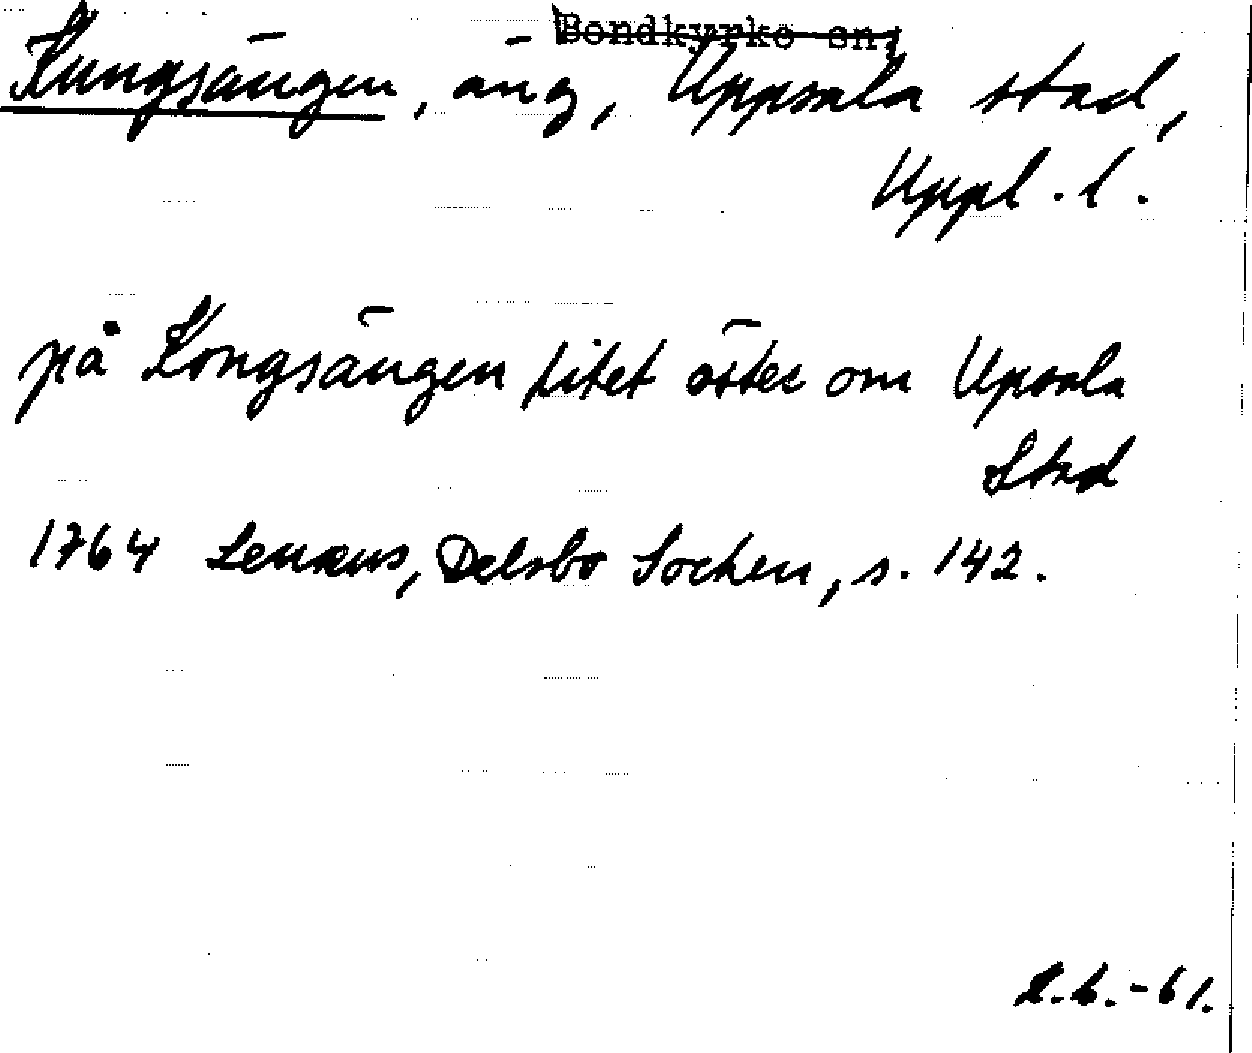 Bondkyrko sn,
Kungsängen, äng, Uppsala stad,
Uppl. l.
på Kongsängen litet öster om Upsala
Stad
1764 Lenæus, Delsbo Sochen, s. 142.
-61.